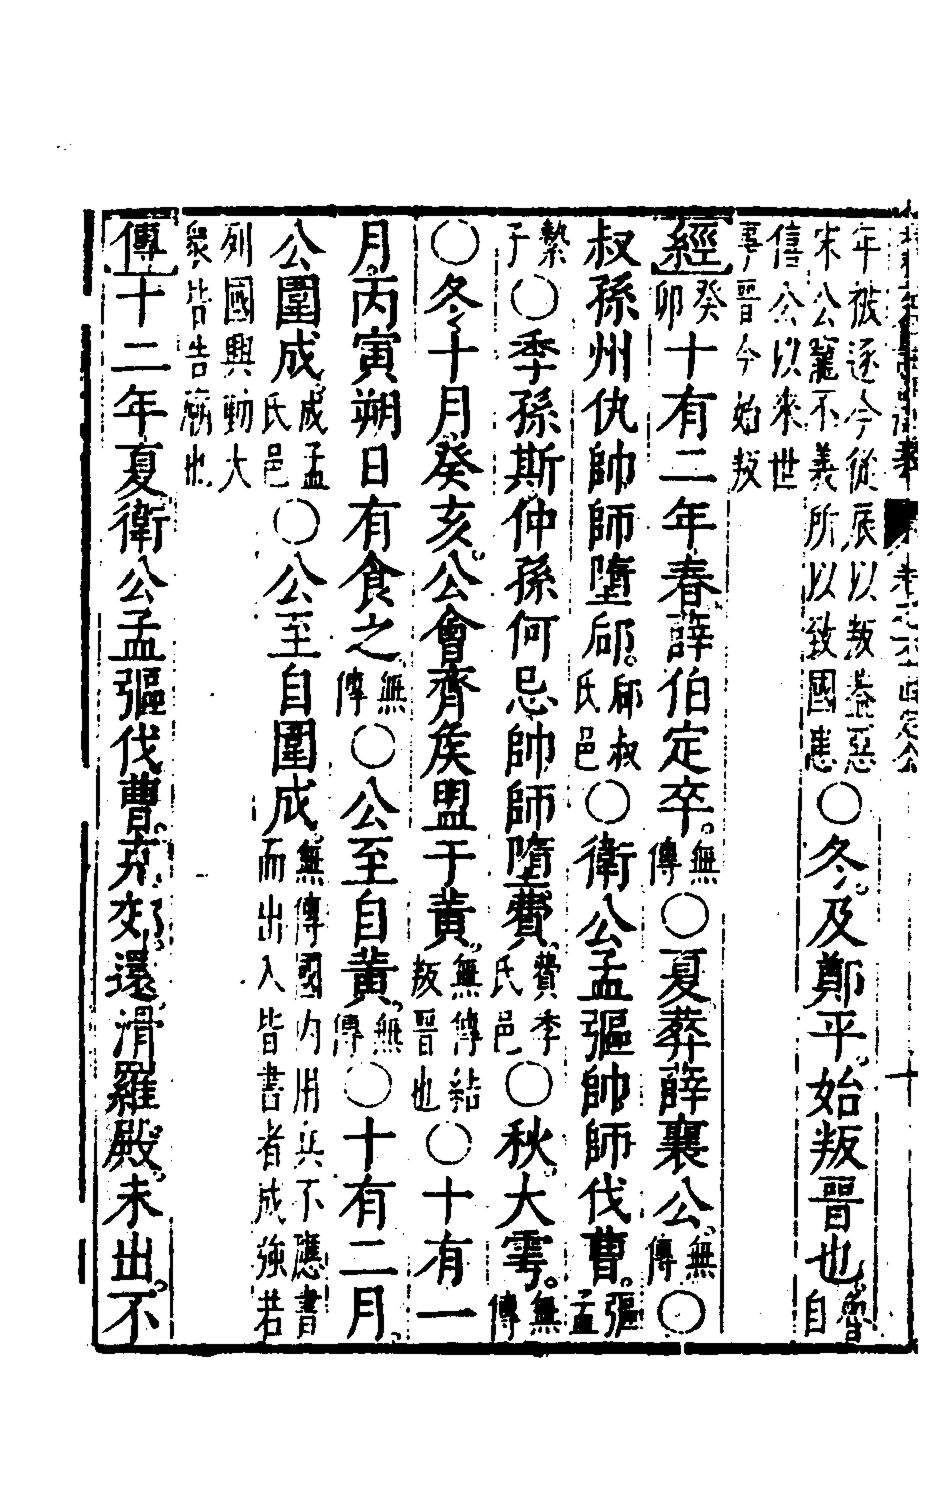 年被逐今從辰以叛益惡宋公寵不義所以致國患○冬及鄭平始叛晉也魯自
僖公以來世事晉今始叛
經癸卯十有二年春薛伯定卒無傳○夏葬薛襄公無傳○
叔孫州仇帥師墮郈郈叔氏邑○衛公孟彄帥師伐曹彄孟
縶子○季孫斯仲孫何忌帥師墮費費季氏邑○秋大雩無傳
○冬十月癸亥公會齊侯盟于黃無傳結叛晉也○十有一
月丙寅朔日有食之無傳○公至自黃無傳○十有二月
公圍成成孟氏邑○公至自圍成無傳國內用兵不應書而出入皆書者成強若
列國興動大衆皆告廟也
傳十二年夏衛公孟彄伐曹克郊還滑羅殿未出不